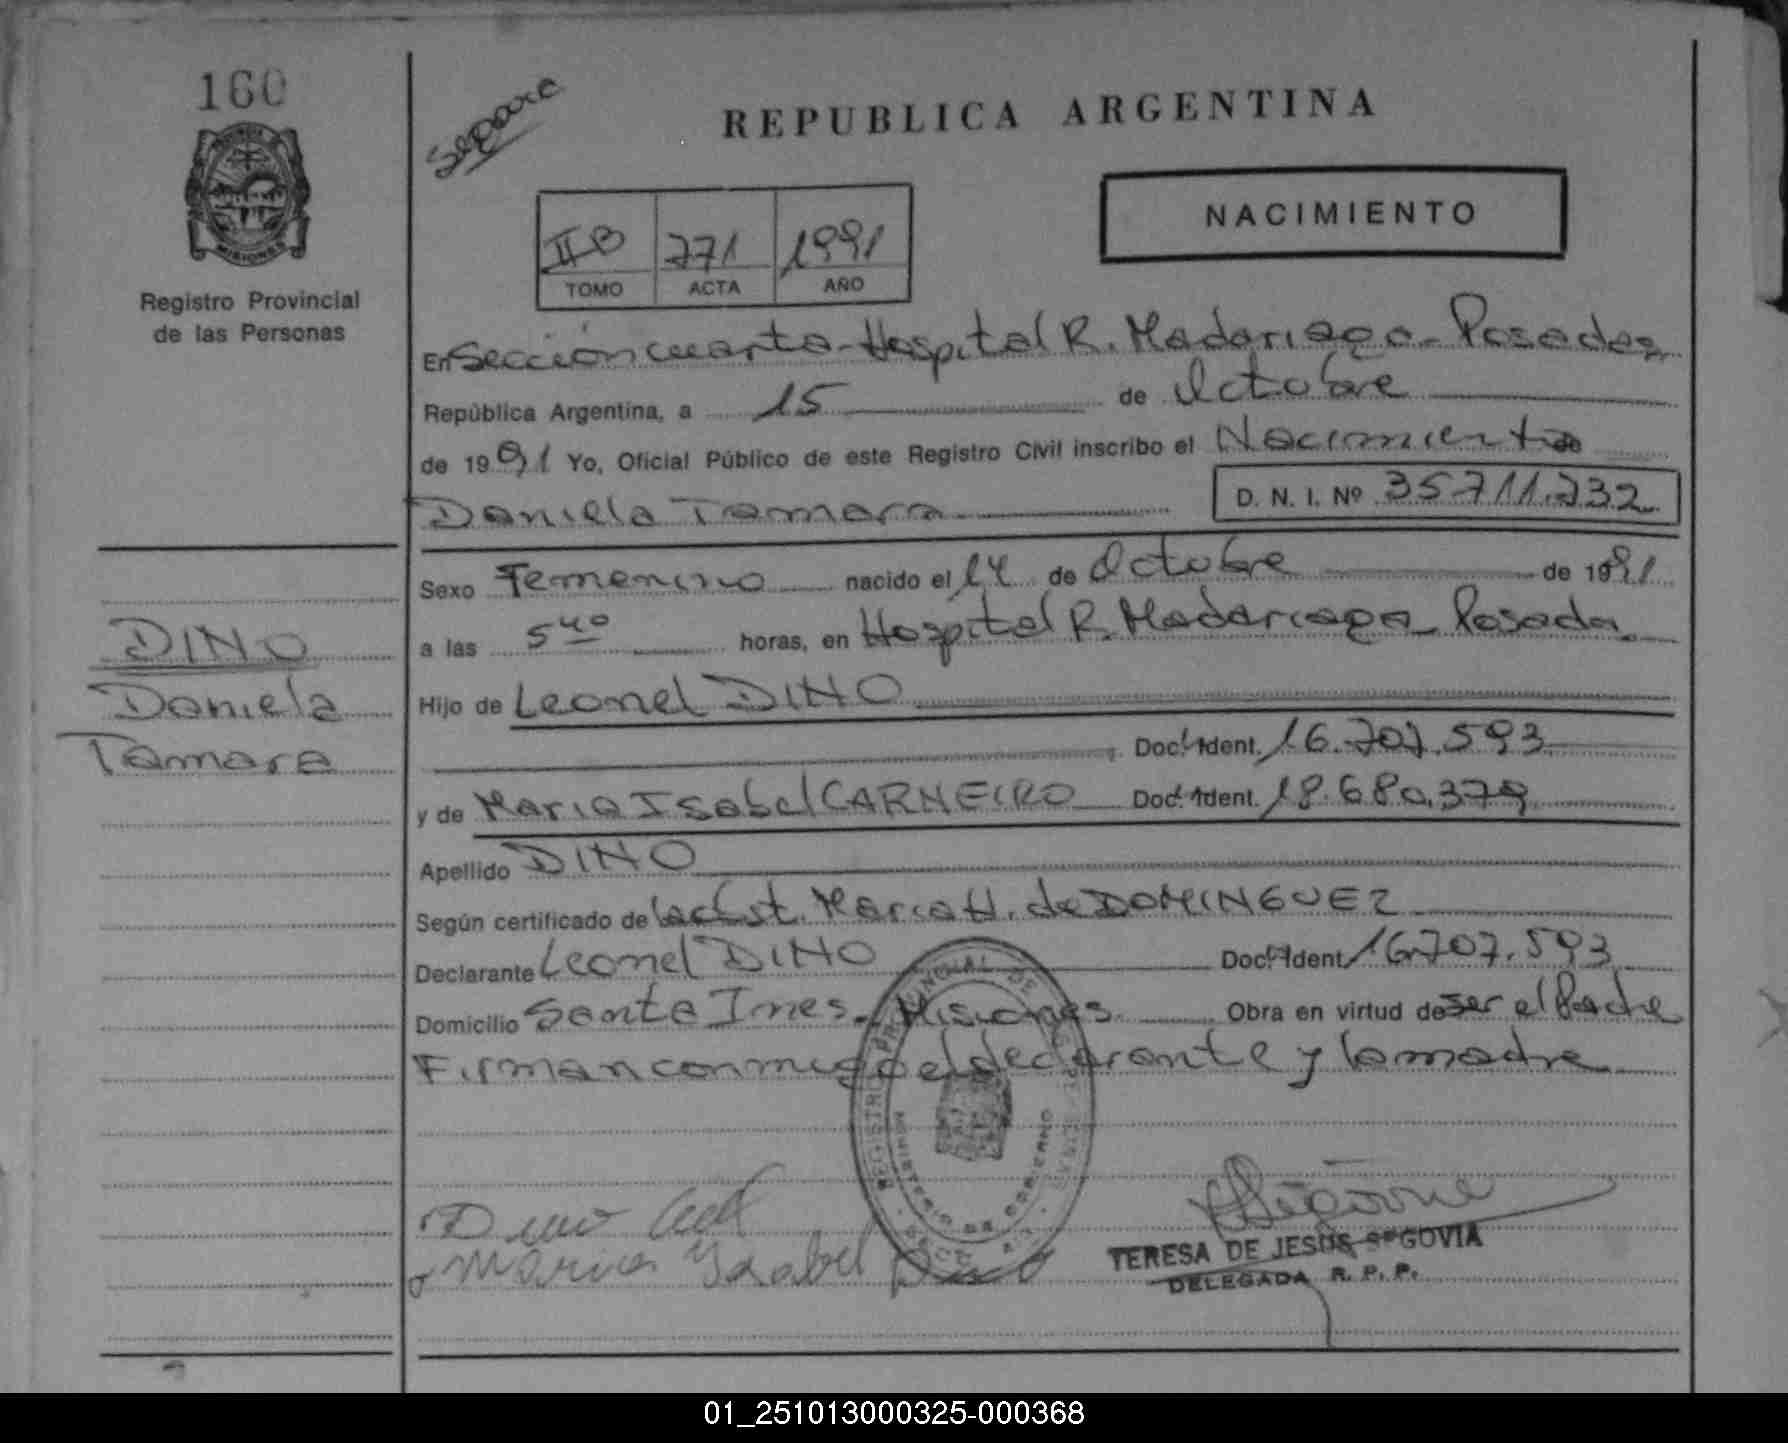 160
Separare
REPUBLICA ARGENTINA
MISIONES
Registro Provincial
de las Personas
II B 771 1991
TOMO ACTA AÑO
NACIMIENTO
En Sección cuarta-Hospital R. Madariaga-Posadas
República Argentina, a 15 de Octubre
de 1991 Yo, Oficial Público de este Registro Civil inscribo el Nacimiento de
Daniela Tamara D. N. I. Nº 35711.732
Sexo Femenino nacido el 14 de Octubre de 1991
a las 5 40 horas, en Hospital R. Madariaga Posadas
Hijo de Leonel DINO
Doc. Ident. 16.707.593
y de Maria Isabel CARNEIRO Doc. Ident. 18.680.379
Apellido DINO
Según certificado de la Obst. Maria H. de DOMINGUEZ
Declarante Leonel DINO Doc. Ident. 16.707.593
Domicilio Santa Ines. Misiones Obra en virtud de ser el Padre
Firman conmigo el declarante y la madre
DINO
Daniela
Tamara
REGISTRO PROVINCIAL DE
MINISTERIO DE GOBIERNO
Dino
Maria Ysabel
TERESA DE JESUS SEGOVIA
DELEGADA R. P. P.
01_251013000325-000368